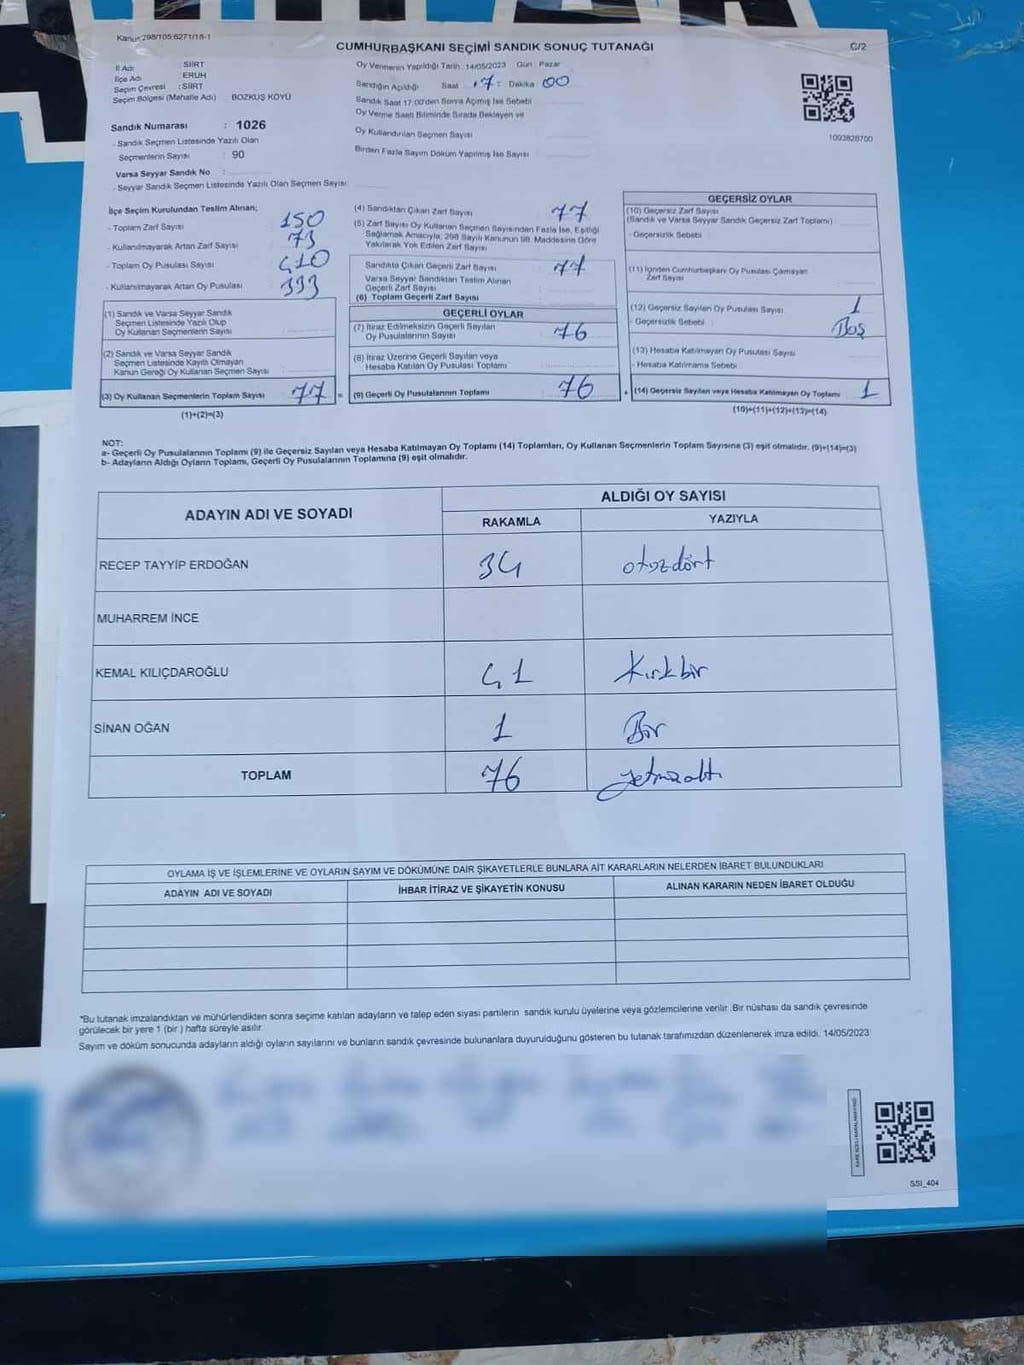 Kanun:298/105;6271/18-1
CUMHURBAŞKANI SEÇİMİ SANDIK SONUÇ TUTANAĞI
C/2
İl Adı : SİİRT
İlçe Adı : ERUH
Seçim Çevresi : SİİRT
Seçim Bölgesi (Mahalle Adı) : BOZKUŞ KÖYÜ
Sandık Numarası : 1026
- Sandık Seçmen Listesinde Yazılı Olan
Seçmenlerin Sayısı : 90
Varsa Seyyar Sandık No :
- Seyyar Sandık Seçmen Listesinde Yazılı Olan Seçmen Sayısı:
Oy Vermenin Yapıldığı Tarih :14/05/2023 Gün : Pazar
Sandığın Açıldığı Saat : 17 : Dakika : 00
Sandık Saat 17.00'den Sonra Açılmış İse Sebebi
Oy Verme Saati Bitiminde Sırada Bekleyen ve
Oy Kullandırılan Seçmen Sayısı
Birden Fazla Sayım Döküm Yapılmış İse Sayısı :
1093828700
İlçe Seçim Kurulundan Teslim Alınan;
- Toplam Zarf Sayısı : 150
- Kullanılmayarak Artan Zarf Sayısı : 73
- Toplam Oy Pusulası Sayısı : 410
- Kullanılmayarak Artan Oy Pusulası : 333
(1) Sandık ve Varsa Seyyar Sandık
Seçmen Listesinde Yazılı Olup
Oy Kullanan Seçmenlerin Sayısı :
(2) Sandık ve Varsa Seyyar Sandık
Seçmen Listesinde Kayıtlı Olmayan
Kanun Gereği Oy Kullanan Seçmen Sayısı :
(3) Oy Kullanan Seçmenlerin Toplam Sayısı : 77 =
(1)+(2)=(3)
(4) Sandıktan Çıkan Zarf Sayısı : 77
(5) Zarf Sayısı Oy Kullanan Seçmen Sayısından Fazla İse, Eşitliği
Sağlamak Amacıyla; 298 Sayılı Kanunun 98. Maddesine Göre
Yakılarak Yok Edilen Zarf Sayısı :
Sandıkta Çıkan Geçerli Zarf Sayısı : 77
Varsa Seyyar Sandıktan Teslim Alınan
Geçerli Zarf Sayısı :
(6) Toplam Geçerli Zarf Sayısı :
GEÇERLİ OYLAR
(7) İtiraz Edilmeksizin Geçerli Sayılan
Oy Pusulasının Sayısı : 76
(8) İtiraz Üzerine Geçerli Sayılan veya
Hesaba Katılan Oy Pusulası Toplamı :
(9) Geçerli Oy Pusulalarının Toplamı : 76 +
GEÇERSİZ OYLAR
(10) Geçersiz Zarf Sayısı
(Sandık ve Varsa Seyyar Sandık Geçersiz Zarf Toplamı) :
- Geçersizlik Sebebi :
(11) İçinden Cumhurbaşkanı Oy Pusulası Çıkmayan
Zarf Sayısı :
(12) Geçersiz Sayılan Oy Pusulası Sayısı : 1
- Geçersizlik Sebebi : Boş
(13) Hesaba Katılmayan Oy Pusulası Sayısı :
- Hesaba Katılmama Sebebi :
(14) Geçersiz Sayılan veya Hesaba Katılmayan Oy Toplamı : 1
(10)+(11)+(12)+(13)=(14)
NOT:
a- Geçerli Oy Pusulalarının Toplamı (9) ile Geçersiz Sayılan veya Hesaba Katılmayan Oy Toplamı (14) Toplamları, Oy Kullanan Seçmenlerin Toplam Sayısına (3) eşit olmalıdır. (9)+(14)=(3)
b- Adayların Aldığı Oyların Toplamı, Geçerli Oy Pusulalarının Toplamına (9) eşit olmalıdır.
ADAYIN ADI VE SOYADI
ALDIĞI OY SAYISI
RAKAMLA YAZIYLA
RECEP TAYYİP ERDOĞAN 34 otuzdört
MUHARREM İNCE
KEMAL KILIÇDAROĞLU 41 Kırkbir
SİNAN OĞAN 1 Bir
TOPLAM 76 yetmişaltı
OYLAMA İŞ VE İŞLEMLERİNE VE OYLARIN SAYIM VE DÖKÜMÜNE DAİR ŞİKAYETLERLE BUNLARA AİT KARARLARIN NELERDEN İBARET BULUNDUKLARI
ADAYIN ADI VE SOYADI İHBAR İTİRAZ VE ŞİKAYETİN KONUSU ALINAN KARARIN NEDEN İBARET OLDUĞU
*Bu tutanak imzalandıktan ve mühürlendikten sonra seçime katılan adayların ve talep eden siyasi partilerin sandık kurulu üyelerine veya gözlemcilerine verilir. Bir nüshası da sandık çevresinde
görülecek bir yere 1 (bir ) hafta süreyle asılır.
Sayım ve döküm sonucunda adayların aldığı oyların sayılarını ve bunların sandık çevresinde bulunanlara duyurulduğunu gösteren bu tutanak tarafımızdan düzenlenerek imza edildi. 14/05/2023
SSI_404